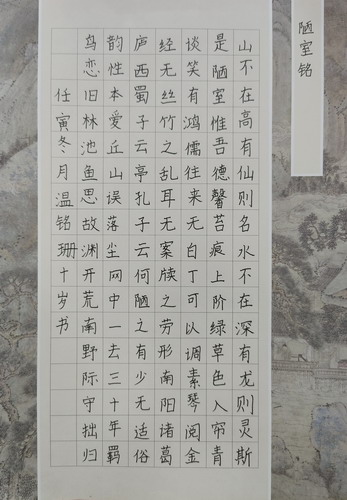 陋室铭
山不在高有仙则名水不在深有龙则灵斯
是陋室惟吾德馨苔痕上阶绿草色入帘青
谈笑有鸿儒往来无白丁可以调素琴阅金
经无丝竹之乱耳无案牍之劳形南阳诸葛
庐西蜀子云亭孔子云何陋之有少无适俗
韵性本爱丘山误落尘网中一去三十年羁
鸟恋旧林池鱼思故渊开荒南野际守拙归
任寅冬月温铭珊十岁书